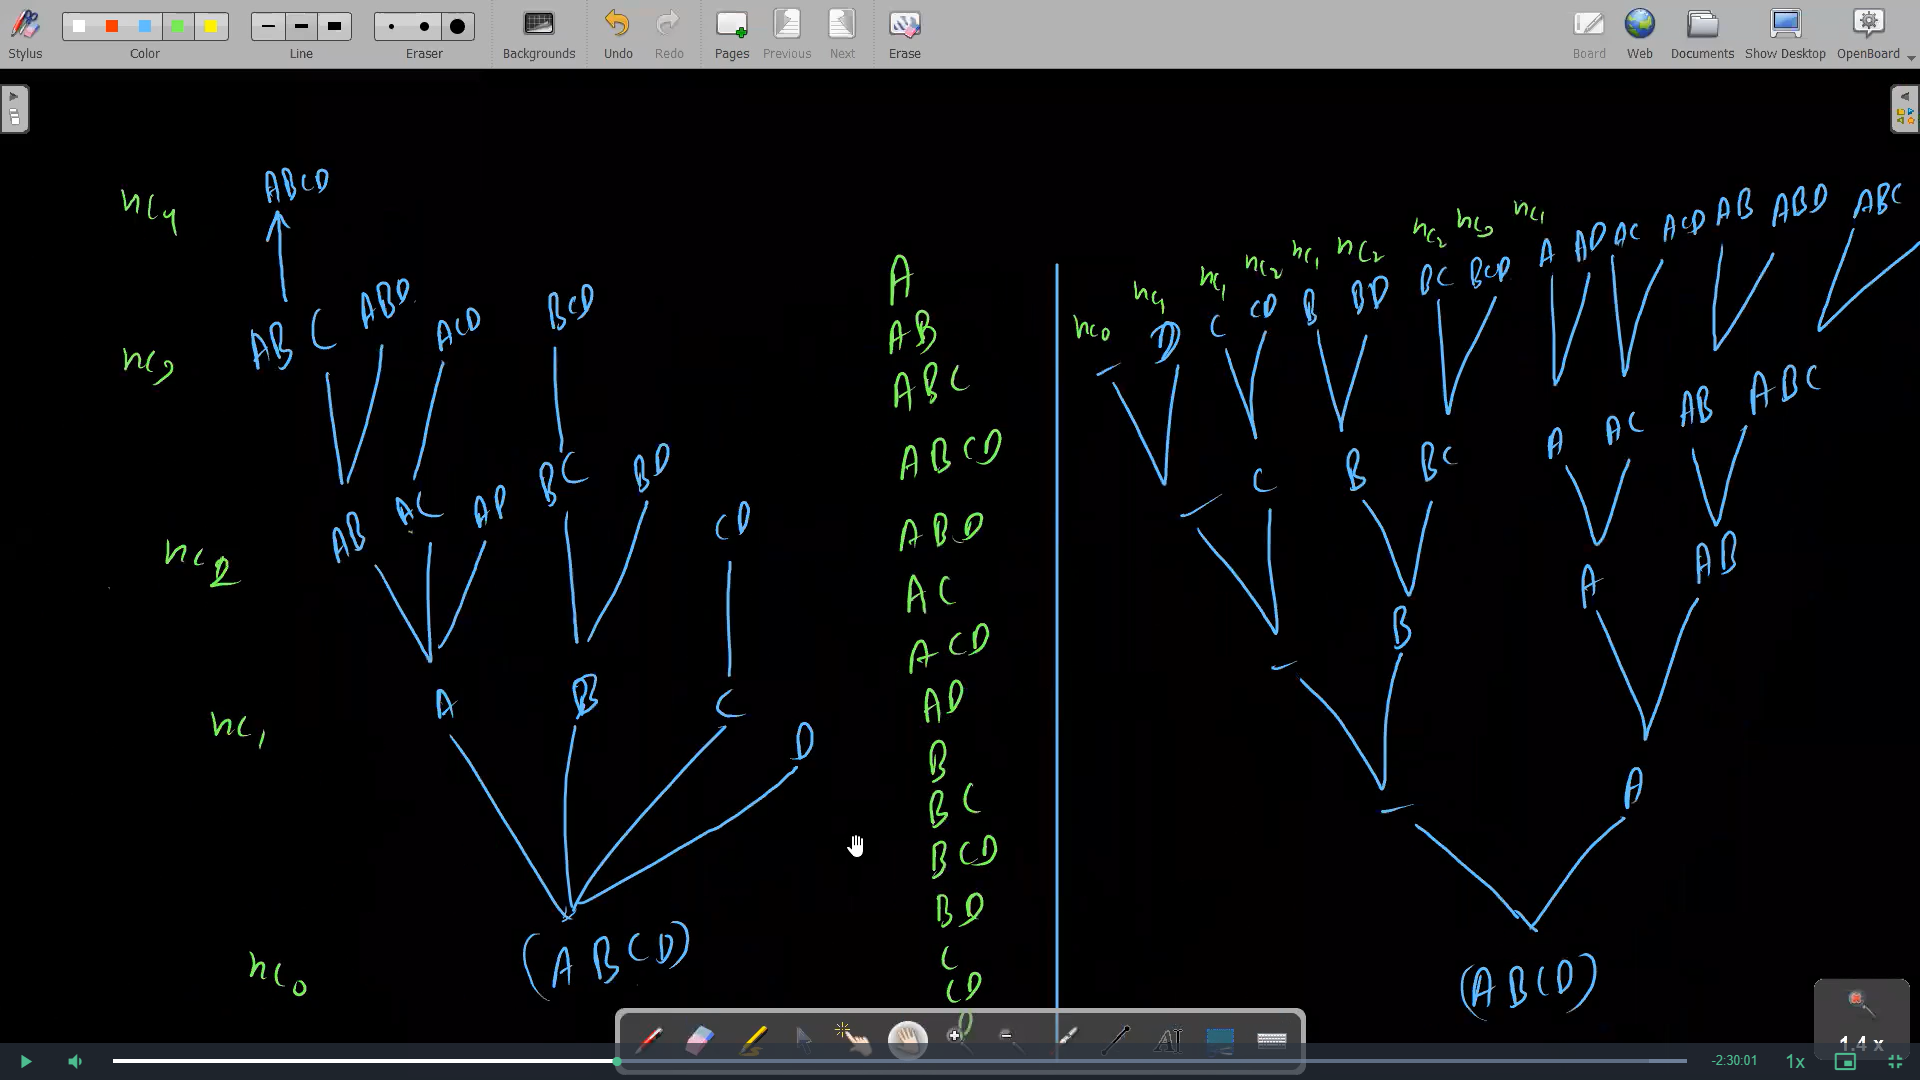 Stylus Color Line Eraser Backgrounds Undo Redo Pages Previous Next Erase Board Web Documents Show Desktop OpenBoard
nc4 ABCD
nc3 ABC ABD ACD BCD
nc2 AB AC AD BC BD CD
nc1 A B C D
nc0 (ABCD)
A
AB
ABC
ABCD
ABD
AC
ACD
AD
B
BC
BCD
BD
C
CD
D
nc0 nc1 nc2 nc1 nc2 nc2 nc3 nc1
– D C CD B BD BC BCD A AD AC ACD AB ABD ABC
– C B BC A AC AB ABC
– B A AB
– A
(ABCD)
1.4 x
-2:30:01 1x